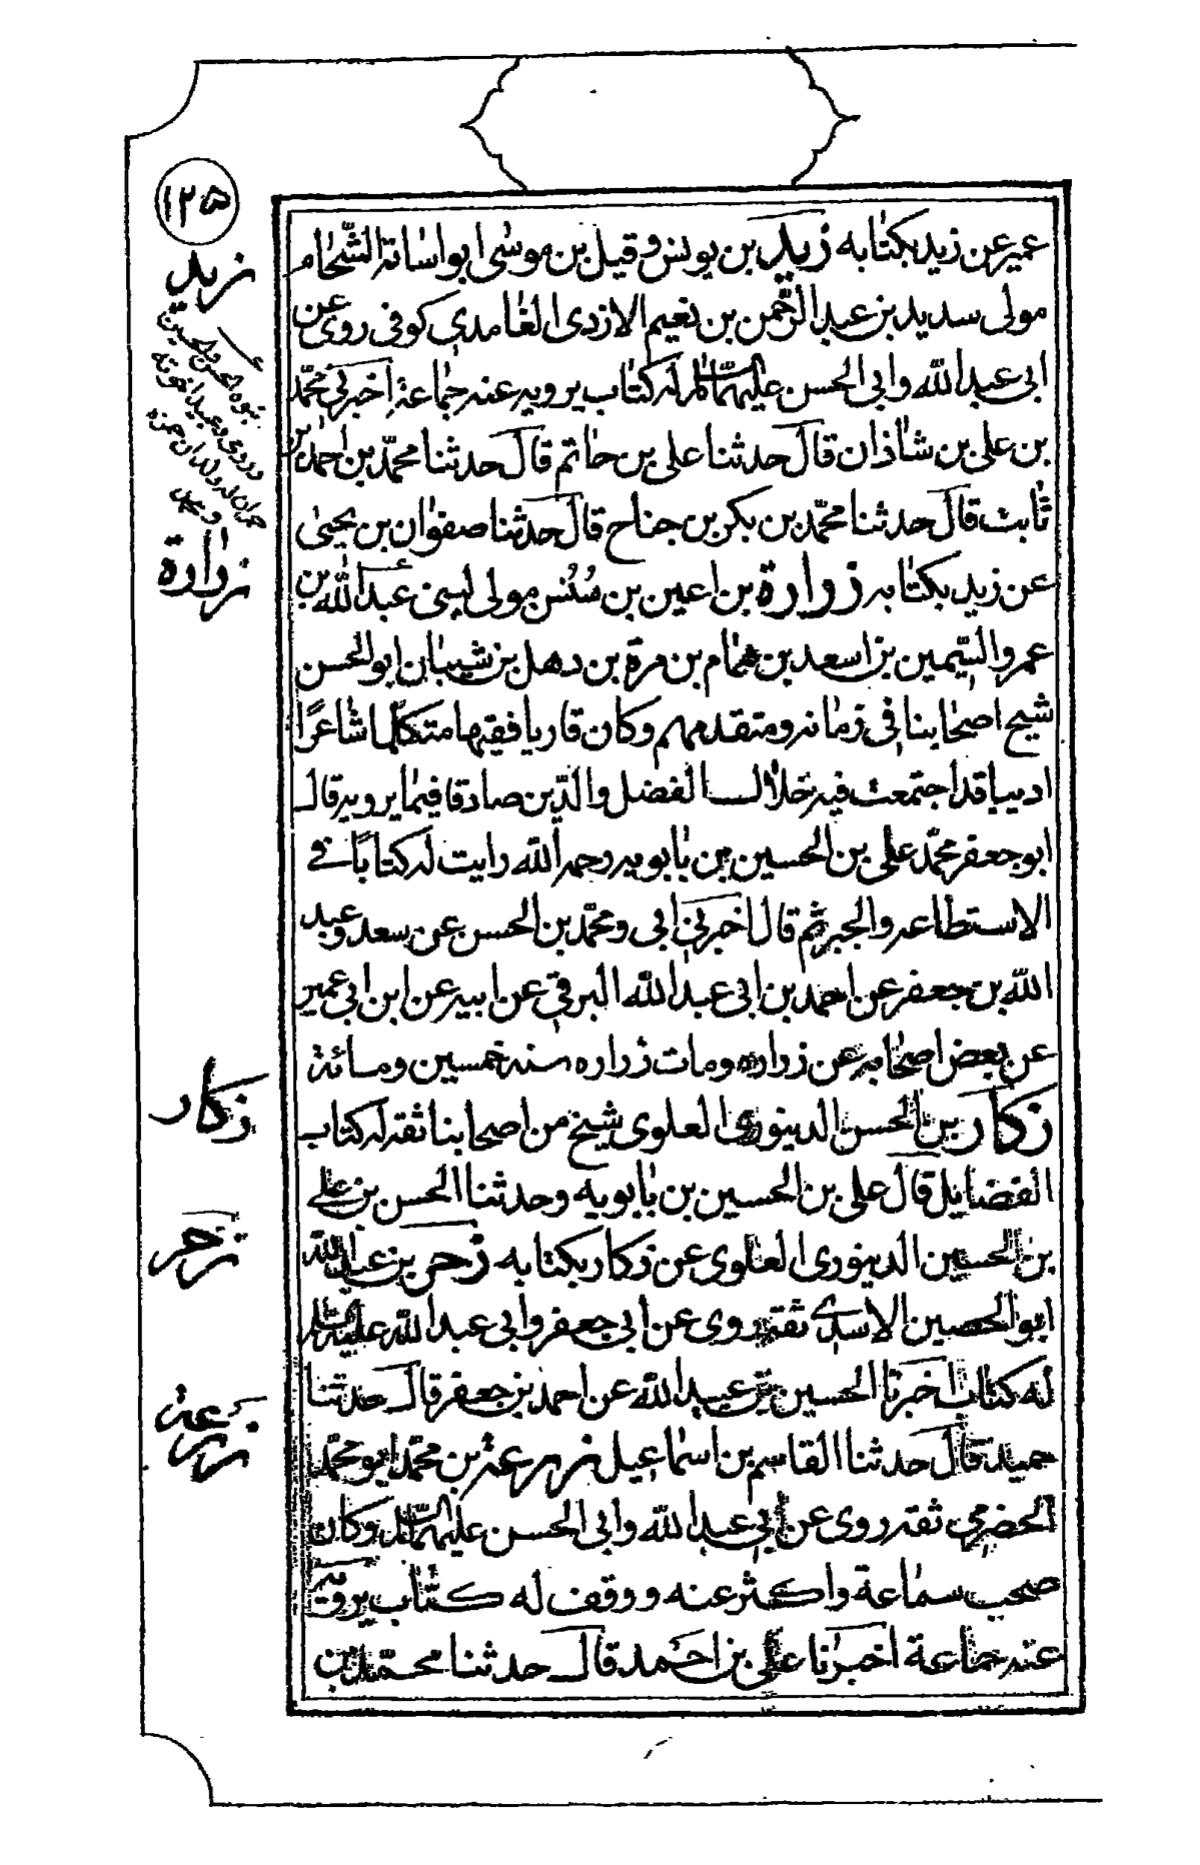 ١٢٥
عمير عن زيد بكتابه زيد بن يونس وقيل بن موسى ابو اسامة الشحام
مولى سديد بن عبد الرحمن بن نعيم الازدى الغامدى كوفى روى عن
ابى عبد الله وابى الحسن عليهما السلام له كتاب يرويه عنه جماعة اخبرنى محمد
بن على بن شاذان قال حدثنا على بن حاتم قال حدثنا محمد بن احمد بن
ثابت قال حدثنا محمد بن بكر بن جناح قال حدثنا صفوان بن يحيى
عن زيد بكتابه زرارة بن اعين بن سُنسُن مولى لبنى عبد الله بن
عمرو السمين بن اسعد بن همام بن مرة بن دهل بن شيبان ابو الحسن
شيخ اصحابنا فى زمانه ومتقدمهم وكان قاريا فقيها متكلما شاعرًا
اديبا قد اجتمعت فيه خلال الفضل والدين صادقا فيما يرويه قال
ابو جعفر محمد على بن الحسين بن بابويه رحمه الله رايت له كتابًا فى
الاستطاعه والجبر ثم قال اخبرنى ابى ومحمد بن الحسن عن سعد وعبد
الله بن جعفر عن احمد بن ابى عبد الله البرقى عن ابيه عن ابن ابى عمير
عن بعض اصحابه عن زراره ومات زراره سنه خمسين ومائة
زكار بن الحسن الدينورى العلوى شيخ من اصحابنا ثقه له كتاب
الفضايل قال على بن الحسين بن بابويه وحدثنا الحسن بن على
بن الحسين الدينورى العلوى عن زكار بكتابه زحر بن عبد الله
ابو الحصين الاسدى ثقه روى عن ابى جعفر وابى عبد الله عليهما السلام
له كتاب اخبرنا الحسين بن عبيد الله عن احمد بن جعفر قال حدثنا
حميد قال حدثنا القاسم بن اسماعيل زرعة بن محمد ابو محمد
الحضرمى ثقه روى عن ابى عبد الله وابى الحسن عليهما السلام وكان
صحب سماعة واكثر عنه ووقف له كتاب يرويه
عنه جماعة اخبرنا على بن احمد قال حدثنا محمد بن
زيد
زرارة
زكار
زحر
زرعة